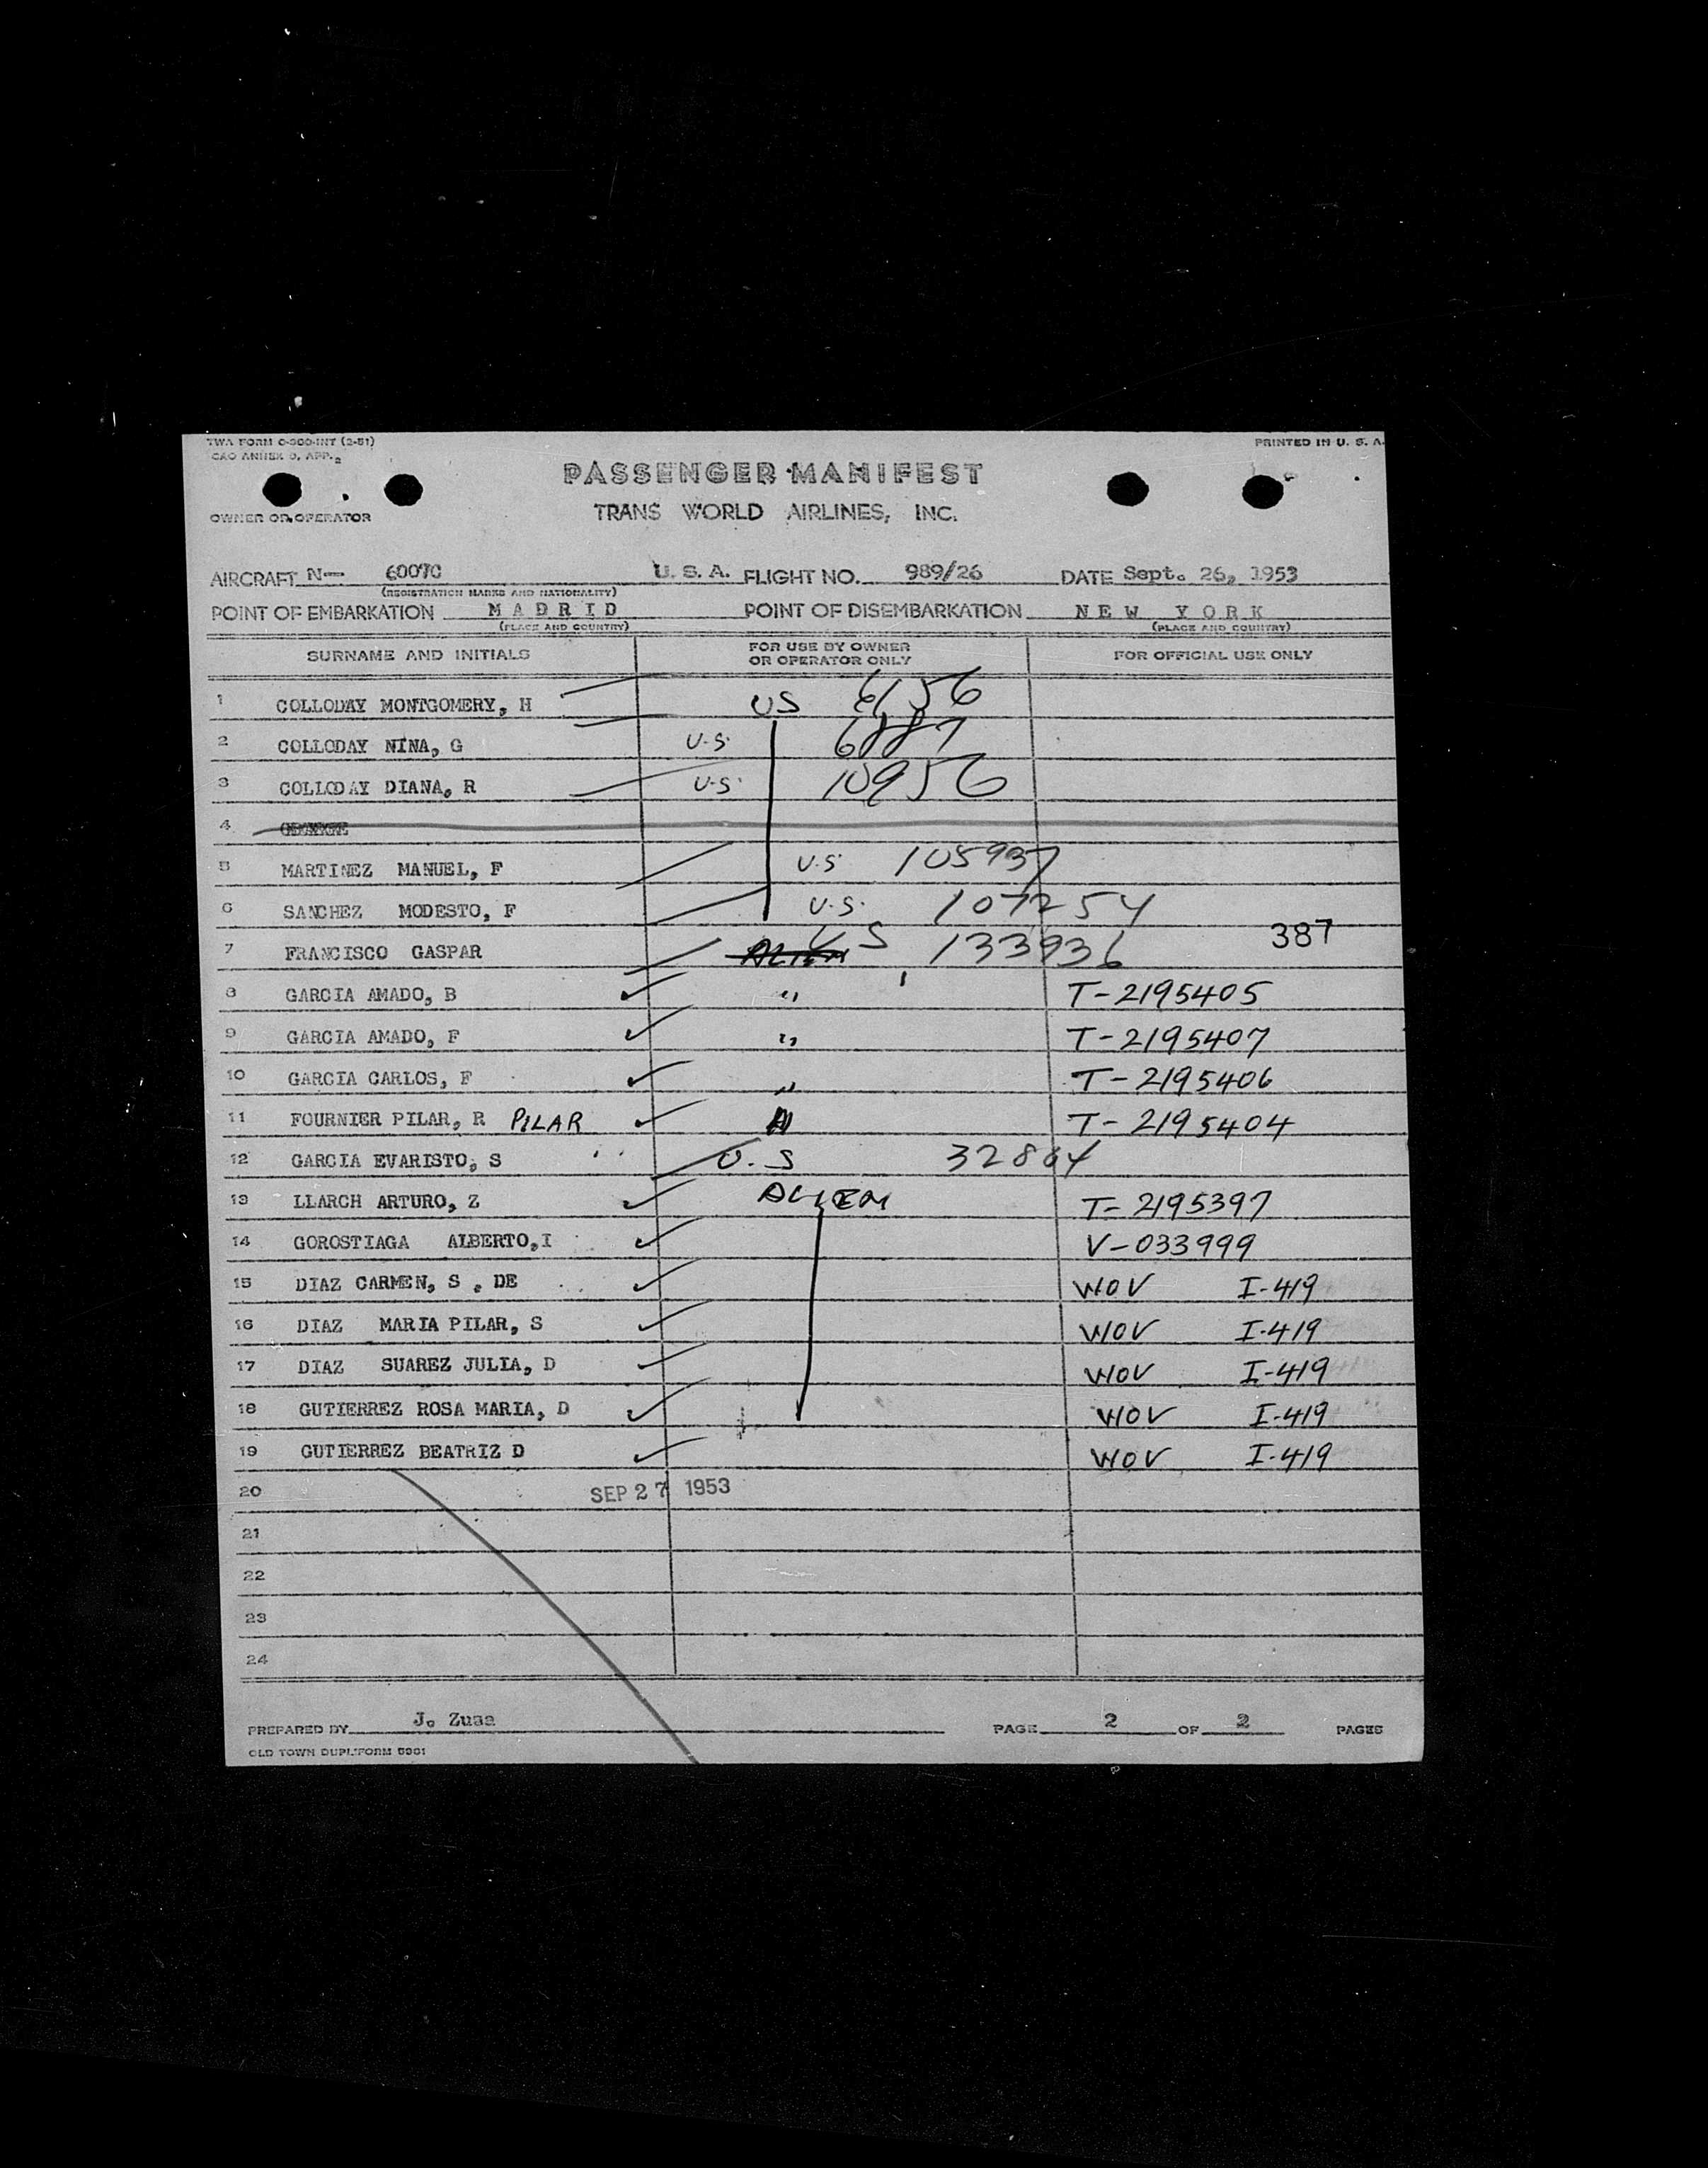 TWA FORM O-300-INT (2-51)
CAO ANNEX 9, APP. 2
PRINTED IN U. S. A.
PASSENGER MANIFEST
OWNER OR OPERATOR
TRANS WORLD AIRLINES, INC.
AIRCRAFT N— 6007C U. S. A. FLIGHT NO. 989/26 DATE Sept. 26, 1953
(REGISTRATION MARKS AND NATIONALITY)
POINT OF EMBARKATION MADRID POINT OF DISEMBARKATION NEW YORK
(PLACE AND COUNTRY) (PLACE AND COUNTRY)
SURNAME AND INITIALS FOR USE BY OWNER OR OPERATOR ONLY FOR OFFICIAL USE ONLY
1 COLLODAY MONTGOMERY, H US 6156
2 COLLODAY NINA, G U.S. 6887
3 COLLODAY DIANA, R U.S. 10956
4
5 MARTINEZ MANUEL, F U.S. 105937
6 SANCHEZ MODESTO, F U.S. 107254
387
7 FRANCISCO GASPAR ALIEN US 133936
8 GARCIA AMADO, B " T-2195405
9 GARCIA AMADO, F " T-2195407
10 GARCIA CARLOS, F " T-2195406
11 FOURNIER PILAR, R PILAR " T-2195404
12 GARCIA EVARISTO, S U.S 32864
13 LLARCH ARTURO, Z ALIEN T-2195397
14 GOROSTIAGA ALBERTO, I V-033999
15 DIAZ CARMEN, S . DE WOV I-419
16 DIAZ MARIA PILAR, S WOV I-419
17 DIAZ SUAREZ JULIA, D WOV I-419
18 GUTIERREZ ROSA MARIA, D WOV I-419
19 GUTIERREZ BEATRIZ D WOV I-419
20 SEP 27 1953
21
22
23
24
PREPARED BY J. Zuaa PAGE 2 OF 2 PAGES
OLD TOWN DUPL. FORM 5961